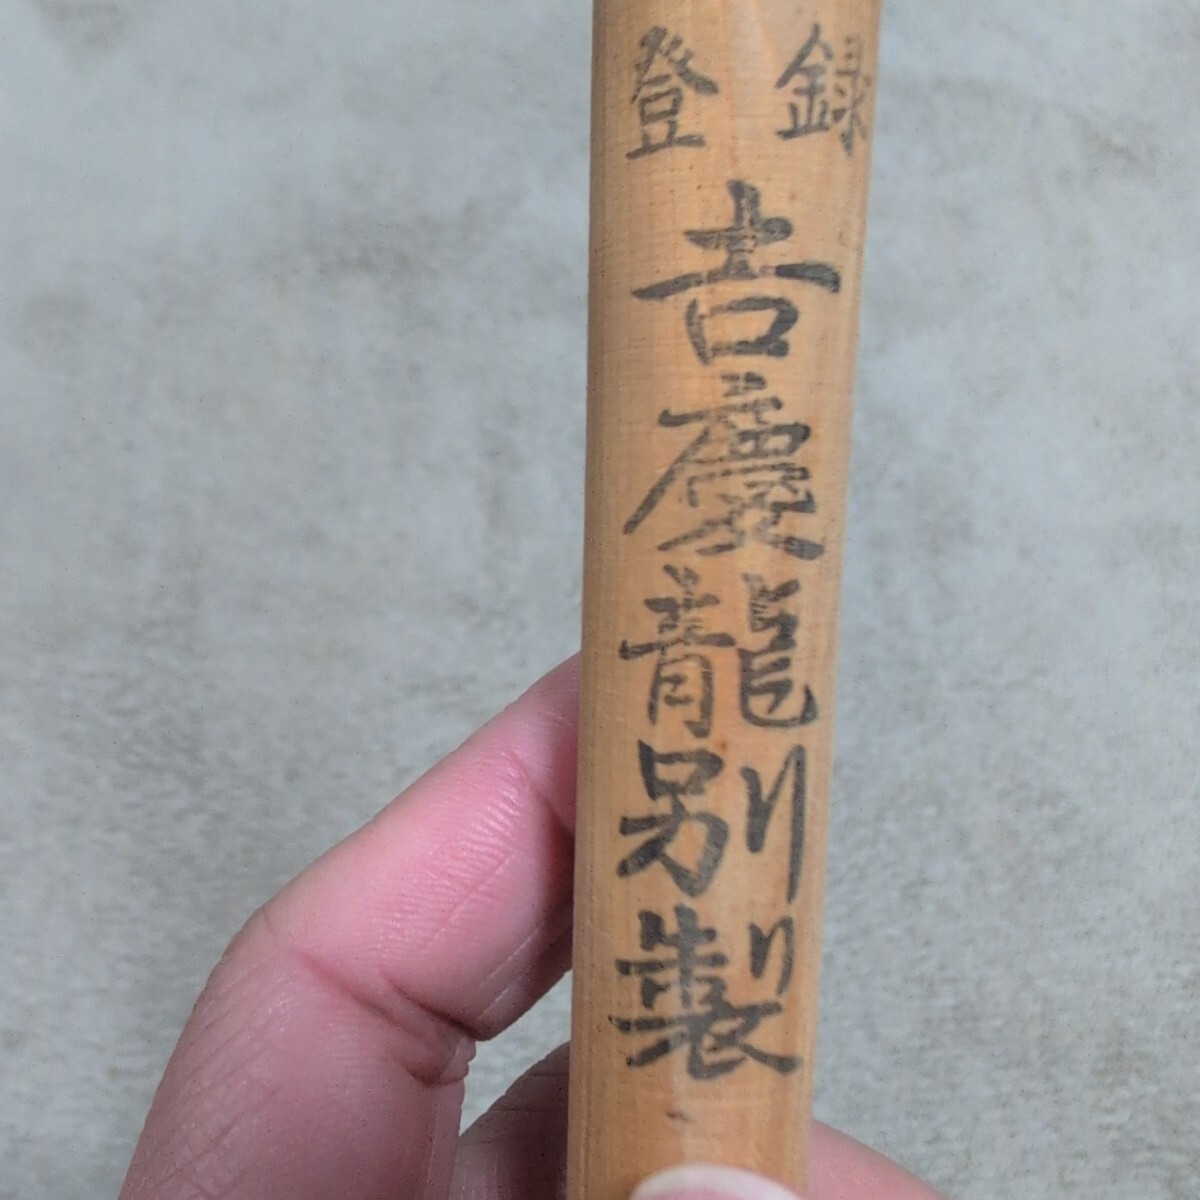 登録
吉慶龍別製